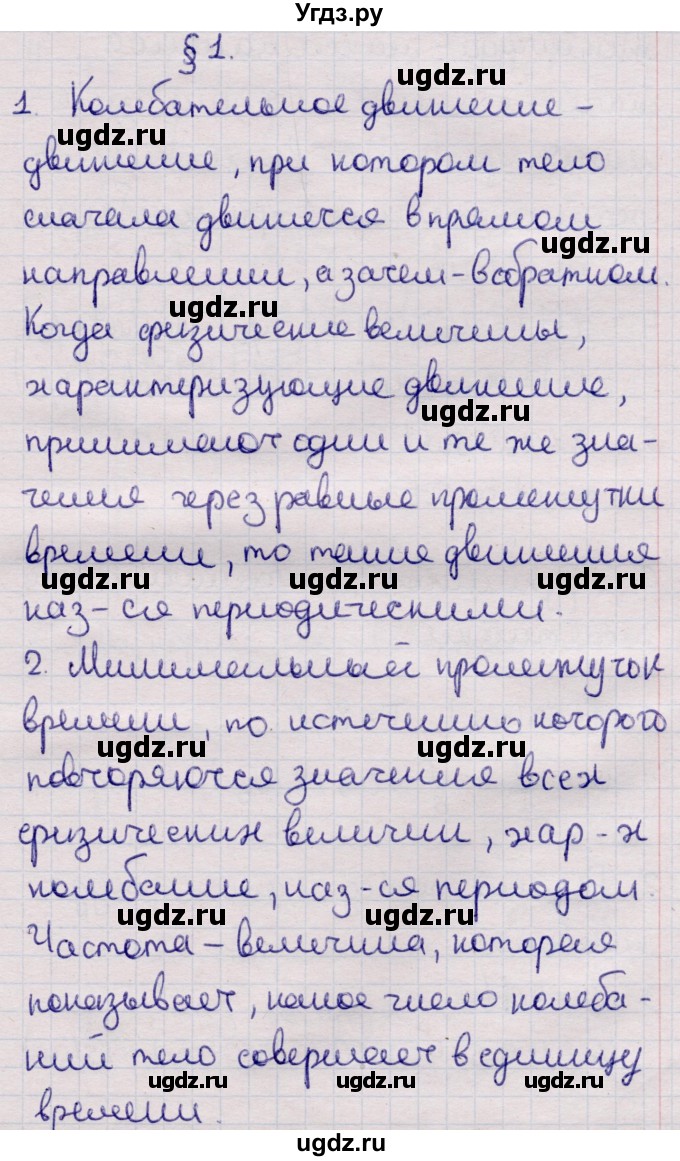 Угдз.ру
§ 1.
ugdz.ru
1. Колебательное движение –
ugdz.ru
движение, при котором тело
сначала движется в прямом
ugdz.ru
направлении, а затем – в обратном.
ugdz.ru
Когда физические величины,
характеризующие движение,
ugdz.ru
принимают одни и те же зна-
чения через равные промежутки
времени, то такие движения
ugdz.ru ugdz.ru ugdz.ru
наз-ся периодическими.
2. Минимальный промежуток
времени, по истечению которого
ugdz.ru ugdz.ru
повторяются значения всех
физических величин, хар-х
колебание, наз-ся периодом.
ugdz.ru ugdz.ru
Частота – величина, которая
показывает, какое число колеба-
ний тело совершает в единицу
ugdz.ru ugdz.ru ugdz.ru
времени.
ugdz.ru